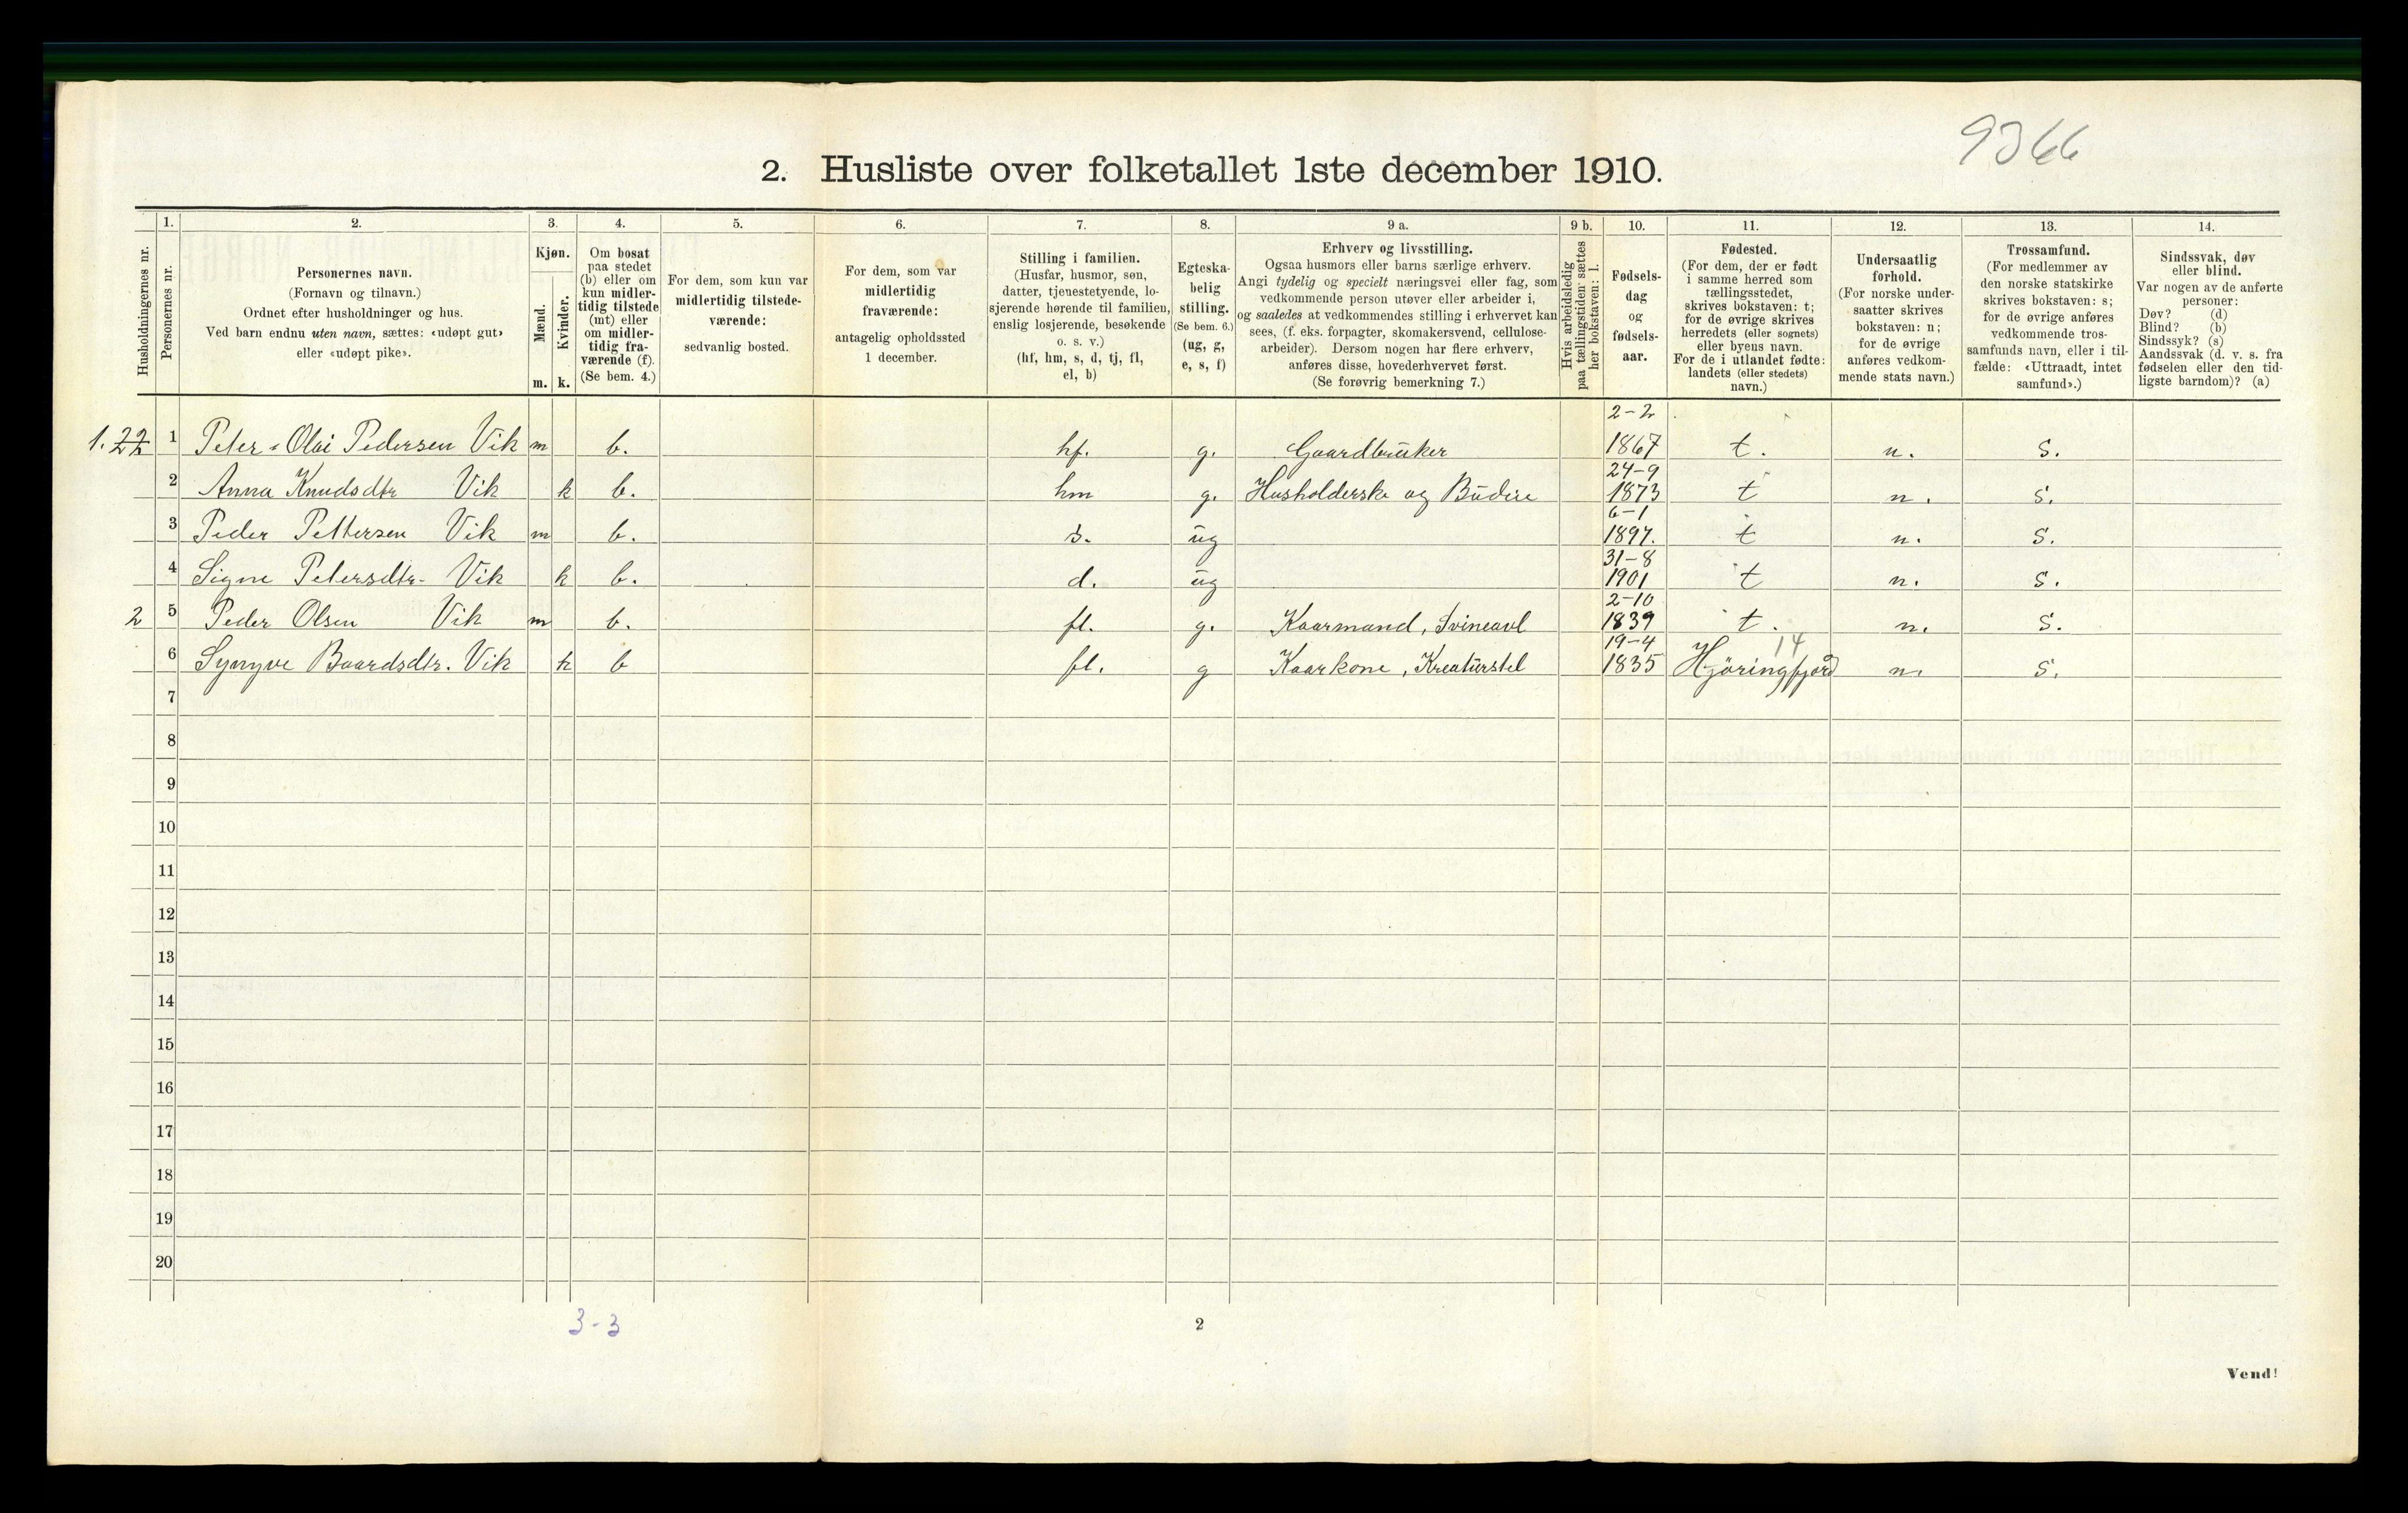 9366
2. Husliste over folketallet 1ste december 1910.
Husholdningernes nr.
1.
Personernes nr.
2.
Personernes navn.
(Fornavn og tilnavn.)
Ordnet efter husholdninger og hus.
Ved barn endnu uten navn, sættes: «udøpt gut»
eller «udøpt pike».
3.
Kjøn.
Mænd.
Kvinder.
m. k.
4.
Om bosat
paa stedet
(b) eller om
kun midler-
tidig tilstede
(mt) eller
om midler-
tidig fra-
værende (f).
(Se bem. 4.)
5.
For dem, som kun var
midlertidig tilstede-
værende:
sedvanlig bosted.
6.
For dem, som var
midlertidig
fraværende:
antagelig opholdssted
1 december.
7.
Stilling i familien.
(Husfar, husmor, søn,
datter, tjenestetyende, lo-
sjerende hørende til familien,
enslig losjerende, besøkende
o. s. v.)
(hf, hm, s, d, tj, fl,
el, b)
8.
Egteska-
belig
stilling.
(Se bem. 6.)
(ug, g,
e, s, f)
9 a.
Erhverv og livsstilling.
Ogsaa husmors eller barns særlige erhverv.
Angi tydelig og specielt næringsvei eller fag, som
vedkommende person utøver eller arbeider i,
og saaledes at vedkommendes stilling i erhvervet kan
sees, (f. eks. forpagter, skomakersvend, cellulose-
arbeider). Dersom nogen har flere erhverv,
anføres disse, hovederhvervet først.
(Se forøvrig bemerkning 7.)
9 b.
Hvis arbeidsledig
paa tællingstiden sættes
her bokstaven: l.
10.
Fødsels-
dag
og
fødsels-
aar.
11.
Fødested.
(For dem, der er født
i samme herred som
tællingsstedet,
skrives bokstaven: t;
for de øvrige skrives
herredets (eller sognets)
eller byens navn.
For de i utlandet fødte:
landets (eller stedets)
navn.)
12.
Undersaatlig
forhold.
(For norske under-
saatter skrives
bokstaven: n;
for de øvrige
anføres vedkom-
mende stats navn.)
13.
Trossamfund.
(For medlemmer av
den norske statskirke
skrives bokstaven: s;
for de øvrige anføres
vedkommende tros-
samfunds navn, eller i til-
fælde: «Uttraadt, intet
samfund».)
14.
Sindssvak, døv
eller blind.
Var nogen av de anførte
personer:
Døv? (d)
Blind? (b)
Sindssyk? (s)
Aandssvak (d. v. s. fra
fødselen eller den tid-
ligste barndom)? (a)
2-2
1. 22 1 Peter-Olai Pedersen Vik m b. hf. g. Gaardbruker 1867 t. n. s.
24-9
2 Anna Knudsdtr Vik k b. hm g. Husholderske og Budeie 1873 t n. s.
6-1
3 Peder Pettersen Vik m b. s. ug 1897. t n. s.
31-8
4 Signe Petersdtr. Vik k b. d. ug 1901 t n. s.
2-10
2 5 Peder Olsen Vik m b. fl. g. Kaarmand, Svineavl 1839 t. n. s.
19-4 14
6 Synyve Baardsdtr. Vik k b fl. g Kaarkone, Kreaturstel 1835 Hjöringfjord n. s.
7
8
9
10
11
12
13
14
15
16
17
18
19
20
3-3
2
Vend!